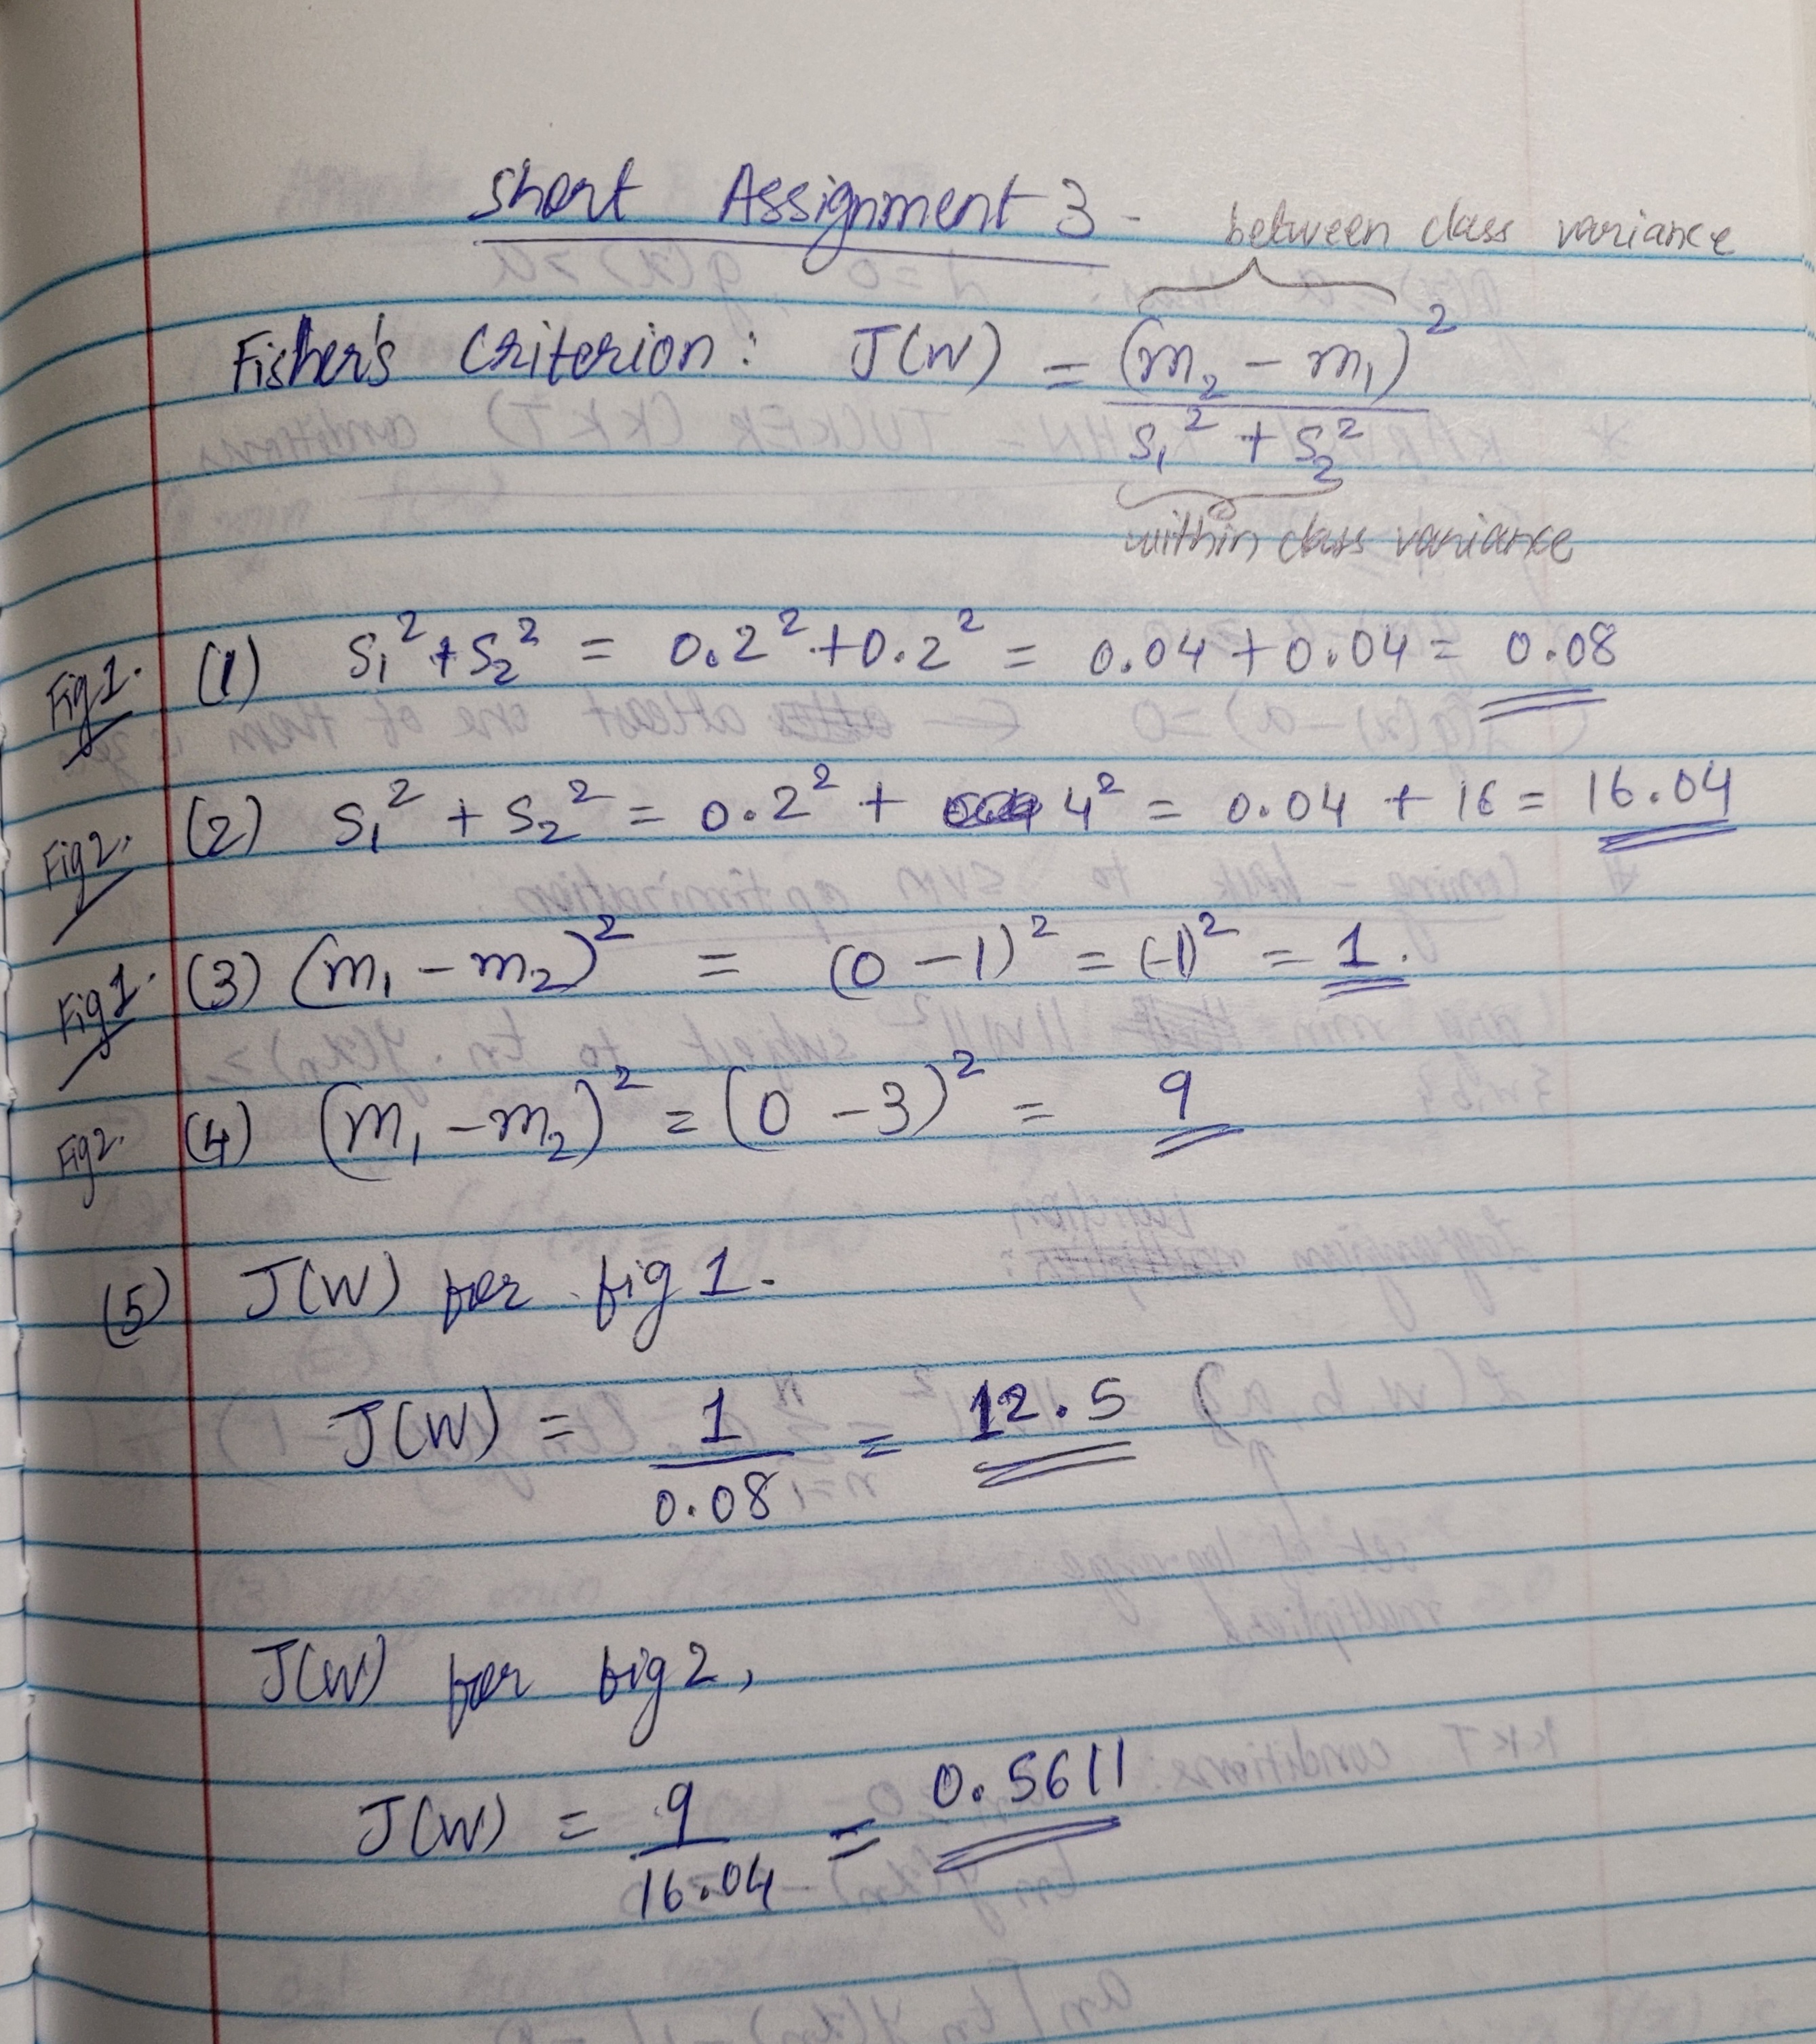 Short Assignment 3 -
between class variance
Fisher's Criterion: J(W) = (m₂ - m₁)² / (s₁² + s₂²)
within class variance
Fig 1. (1) s₁² + s₂² = 0.2² + 0.2² = 0.04 + 0.04 = 0.08
Fig 2. (2) s₁² + s₂² = 0.2² + 4² = 0.04 + 16 = 16.04
Fig 1. (3) (m₁ - m₂)² = (0 - 1)² = (-1)² = 1.
Fig 2. (4) (m₁ - m₂)² = (0 - 3)² = 9
(5) J(W) for fig 1.
J(W) = 1 / 0.08 = 12.5
J(W) for fig 2,
J(W) = 9 / 16.04 = 0.5611